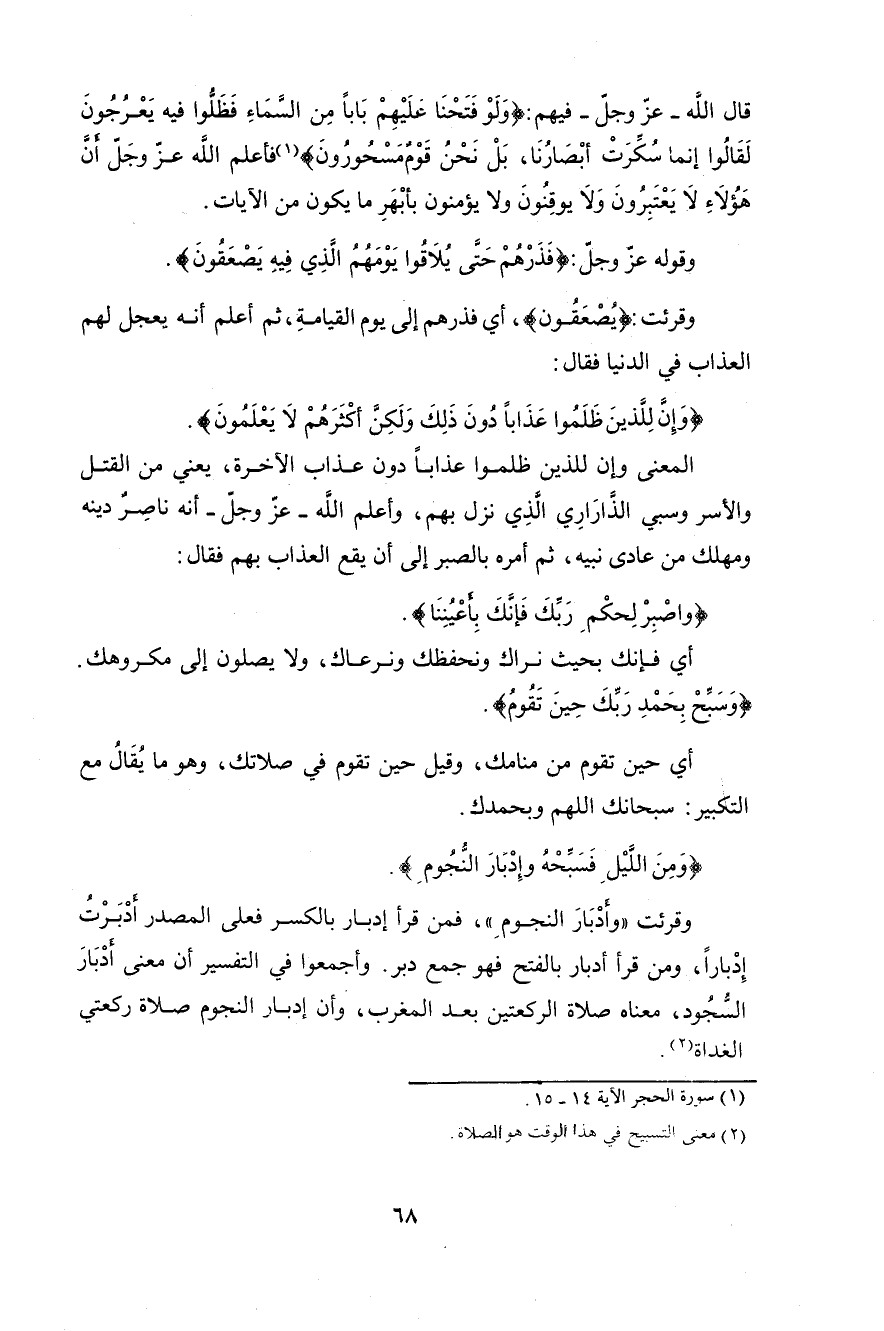 قال اللَّه ـ عزّ وجلّ ـ فيهم: ﴿وَلَوْ فَتَحْنَا عَلَيْهِمْ بَاباً مِن السَّمَاءِ فَظَلُّوا فيه يَعْرُجُونَ
لَقَالُوا إنما سُكِّرَتْ أبْصَارُنَا، بَلْ نَحْنُ قَوْمٌ مَسْحُورُونَ﴾(١) فأعلم اللَّه عزّ وجَلّ أنَّ
هَؤُلَاءِ لَا يَعْتَبِرُونَ وَلَا يوقِنُونَ ولا يؤمنون بأبْهَرِ ما يكون من الآيات.
وقوله عزّ وجلّ: ﴿فَذَرْهُمْ حَتَّى يُلَاقُوا يَوْمَهُمُ الَّذِي فِيهِ يَصْعَقُونَ﴾.
وقرئت: ﴿يُصْعَقُون﴾، أي فذرهم إلى يوم القيامةِ، ثم أعلم أنه يعجل لهم
العذاب في الدنيا فقال:
﴿وَإِنَّ لِلَّذينَ ظَلَمُوا عَذَاباً دُونَ ذَلِكَ وَلَكِنَّ أكْثَرَهُمْ لَا يَعْلَمُونَ﴾.
المعنى وإن للذين ظلموا عذاباً دون عذاب الآخرة، يعني من القتل
والأسر وسبي الذَّارَارِي الَّذِي نزل بهم، وأعلم اللَّه ـ عزّ وجلّ ـ أنه ناصِرٌ دينه
ومهلك من عادى نبيه، ثم أمره بالصبر إلى أن يقع العذاب بهم فقال:
﴿واصْبِرْ لِحكْمِ رَبِّكَ فَإنَّكَ بِأَعْيُنِنَا﴾.
أي فإنك بحيث نراك ونحفظك ونرعاك، ولا يصلون إلى مكروهك.
﴿وَسَبِّحْ بِحَمْدِ رَبِّكَ حِينَ تَقُومُ﴾.
أي حين تقوم من منامك، وقيل حين تقوم في صلاتك، وهو ما يُقَالُ مع
التكبير: سبحانك اللهم وبحمدك.
﴿وَمِنَ اللَّيْلِ فَسَبِّحْهُ وإدْبَارَ النُّجُومِ﴾.
وقرئت «وأَدْبَارَ النجومِ»، فمن قرأ إدبار بالكسر فعلى المصدر أدْبَرْتُ
إدْباراً، ومن قرأ أدبار بالفتح فهو جمع دبر. وأجمعوا في التفسير أن معنى أدْبَارَ
السُّجُود، معناه صلاة الركعتين بعد المغرب، وأن إدبار النجوم صلاة ركعتي
الغداة(٢).
(١) سورة الحجر الآية ١٤ ـ ١٥.
(٢) معنى التسبيح في هذا الوقت هو الصلاة.
٦٨